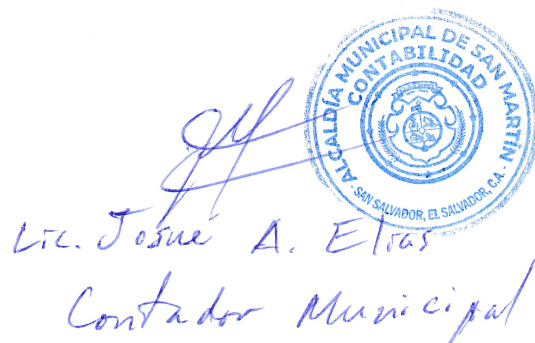 ALCALDÍA MUNICIPAL DE SAN MARTÍN
CONTABILIDAD
SAN SALVADOR, EL SALVADOR, C.A.
Lic. Josue A. Elias
Contador Municipal